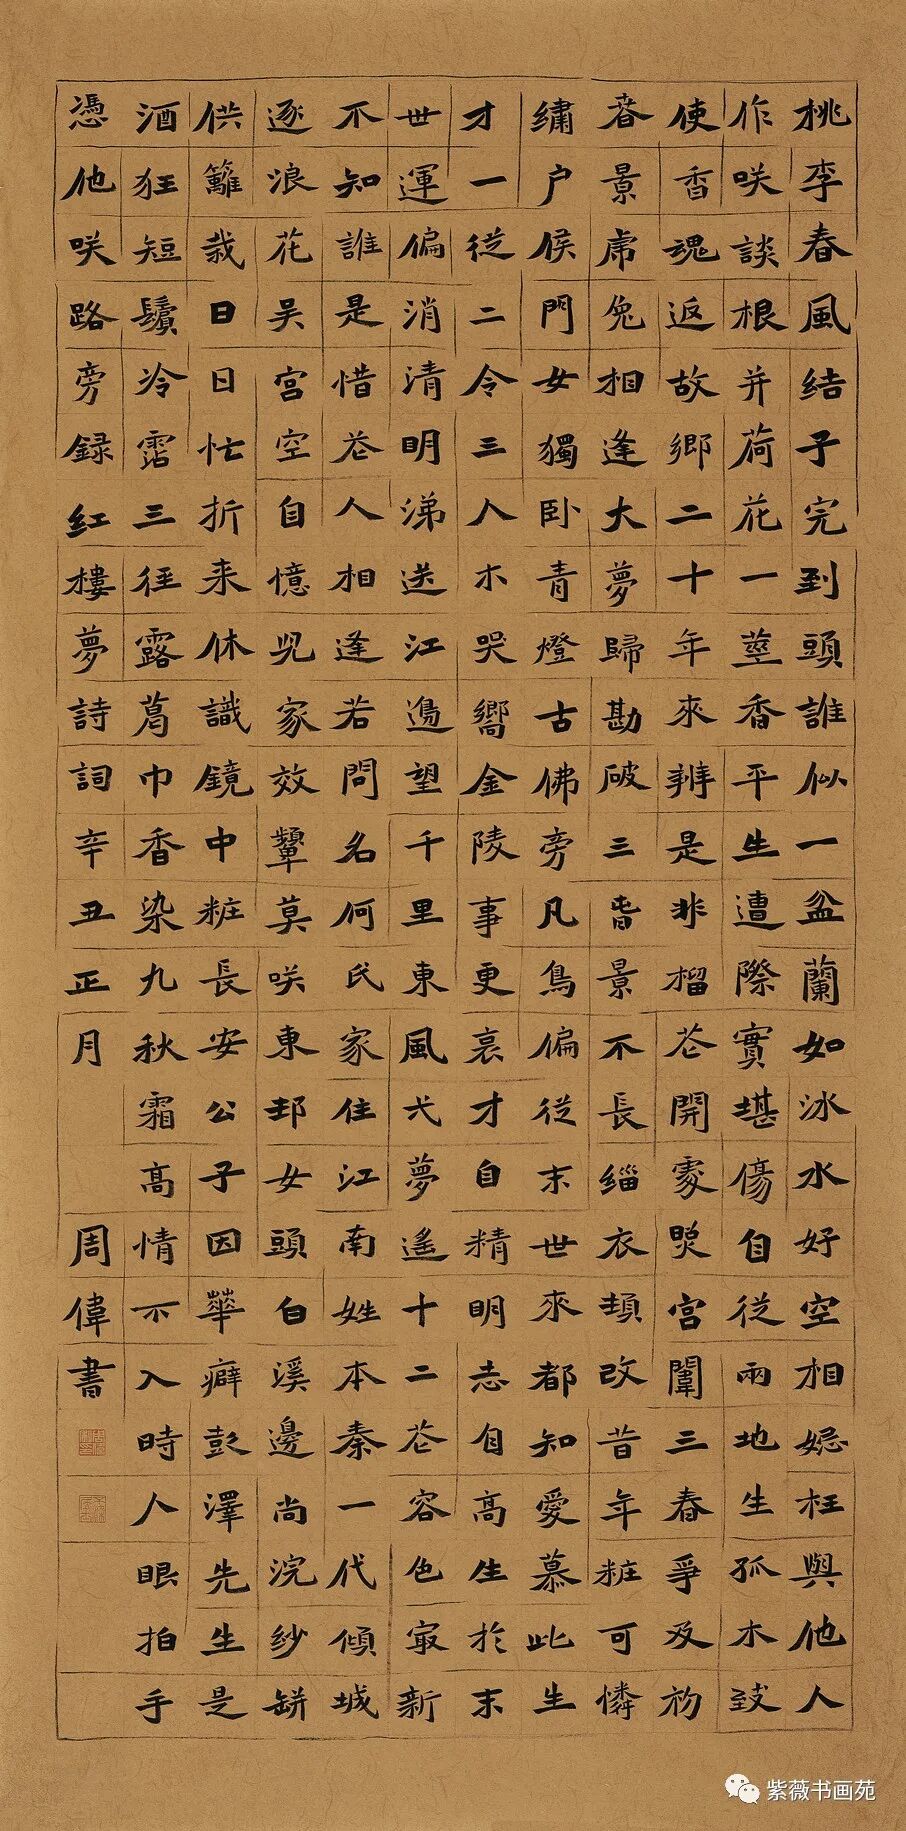 桃李春風結子完到頭誰似一盆蘭如冰水好空相妬枉與他人
作咲談根并荷花一莖香平生遭際實堪傷自從兩地生孤木致
使香魂返故鄉二十年來辨是非榴芲開處照宮闈三春爭及初
春景虎兔相逢大夢歸勘破三春景不長緇衣頓改昔年粧可憐
繡户侯門女獨卧青燈古佛旁凡鳥偏從末世來都知愛慕此生
才一從二令三人木哭嚮金陵事更哀才自精明志自高生於末
世運偏消清明涕送江邊望千里東風弌夢遙十二芲容色最新
不知誰是惜芲人相逢若問名何氏家住江南姓本秦一代傾城
逐浪花吴宮空自憶兒家效顰莫咲東邨女頭白溪邊尚浣紗缾
供籬栽日日忙折来休識鏡中粧長安公子因華癖彭澤先生是
酒狂短鬢冷霑三徑露葛巾香染九秋霜高情不入時人眼拍手
憑他咲路旁録紅樓夢詩詞辛丑正月 周偉書
紫薇书画苑